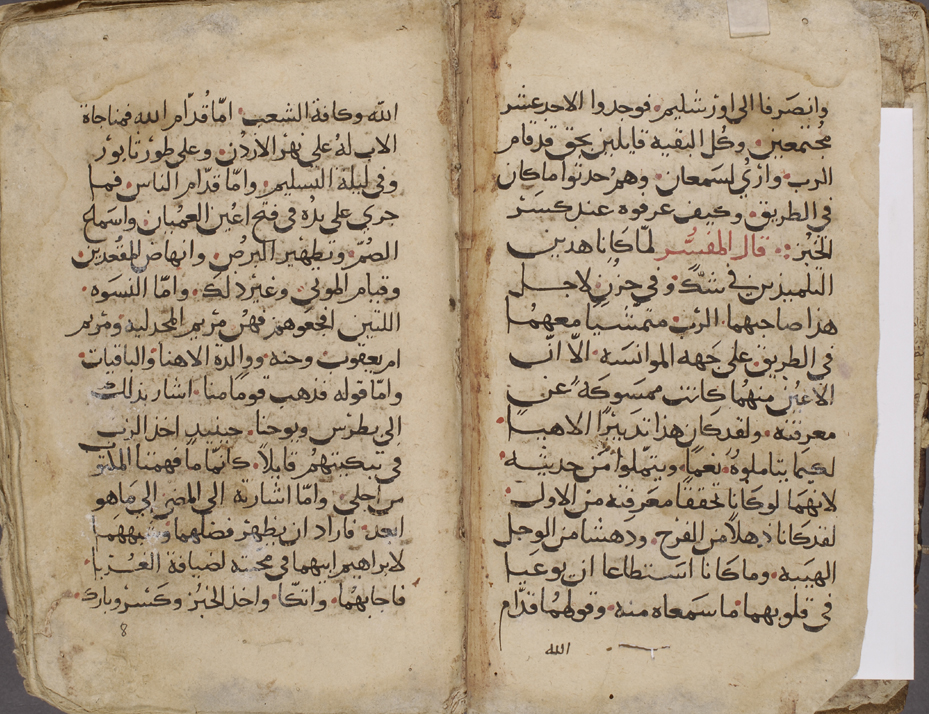 وانصرفا الى اورشليم فوجدوا الاحد عشر
مجتمعين وكل البقية قايلين بحق قد قام
الرب وارُي لسمعان وهم حدثوا ما كان
في الطريق وكيف عرفوه عند كسر
الخبز قال المفسّر لما كانا هدين
التلميذين في شكٍّ وفي حزنٍ لاجل
هدا صاحبهما الرب متمشيًا معهما
في الطريق على جهه الموانسه الّا انّ
الاعين منهما كانت ممسوكة عن
معرفته ولقد كان هذا تدبيرًا الاهيا
لكيما يتاملوهُ نعمًا ويتملوا من حديثه
لانهما لو كانا تحققا معرفته من الاول
لقد كانا ذهلا من الفرح ودهشا من الوجل
الهيبه وما كانا استطاعا ان يوعيا
في قلوبهما ما سمعاه منه وقولهما قدّام
الله
الله وكافة الشعب امّا قُدّام الله فمناجاة
الاب لهُ على نهر الاردُن وعلى طور تابور
وفي ليلة التسليم وامّا قدّام الناس فما
جرى على يدُه في فتح اعين العميان واسماع
الصُمّ وتطهير البرص وانهاض المقعدين
وقيام الموتى وغير ذلك وامّا النسوه
اللتين افجعوهم فهن مريم المجدليه ومريم
ام يعقوب وحنه ووالدة الاهنا والباقيات
وامّا قوله فذهب قومًا منا اشار بذلك
الى بطرس ويوحنا حينيدٍ اخذ الرب
في تبكيتهم قايلاً كانّما ما فهمتما
من اجلي وامّا اشارته الى المضي الى ما هو
ابعد فاراد ان يطهر فضلهما
لابراهيم ابيهما في محبته لضيافة الغربا
فاجابهما واتكا واخذ الخبز وكسر وبارك
8